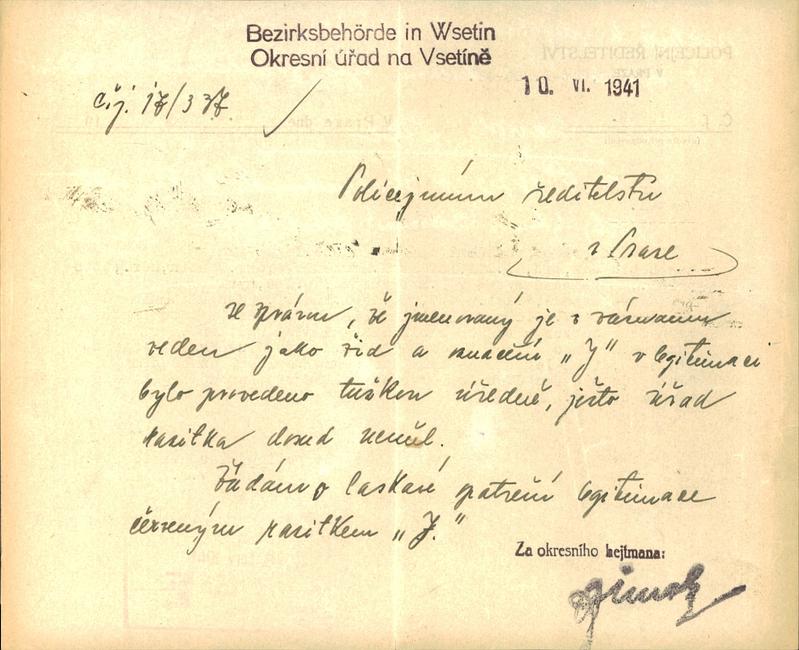 Bezirksbehörde in Wsetin
Okresní úřad na Vsetíně
10. VI. 1941
č.j. 17/3 37.
Policejnímu ředitelství
v Praze
se zprávou, že jmenovaný je v záznamu
veden jako žid a označení „J“ v legitimaci
bylo provedeno tužkou úředně, ježto úřad
razítka dosud neměl.
Žádám o laskavé opatření legitimace
červeným razítkem „J.“
Za okresního hejtmana: